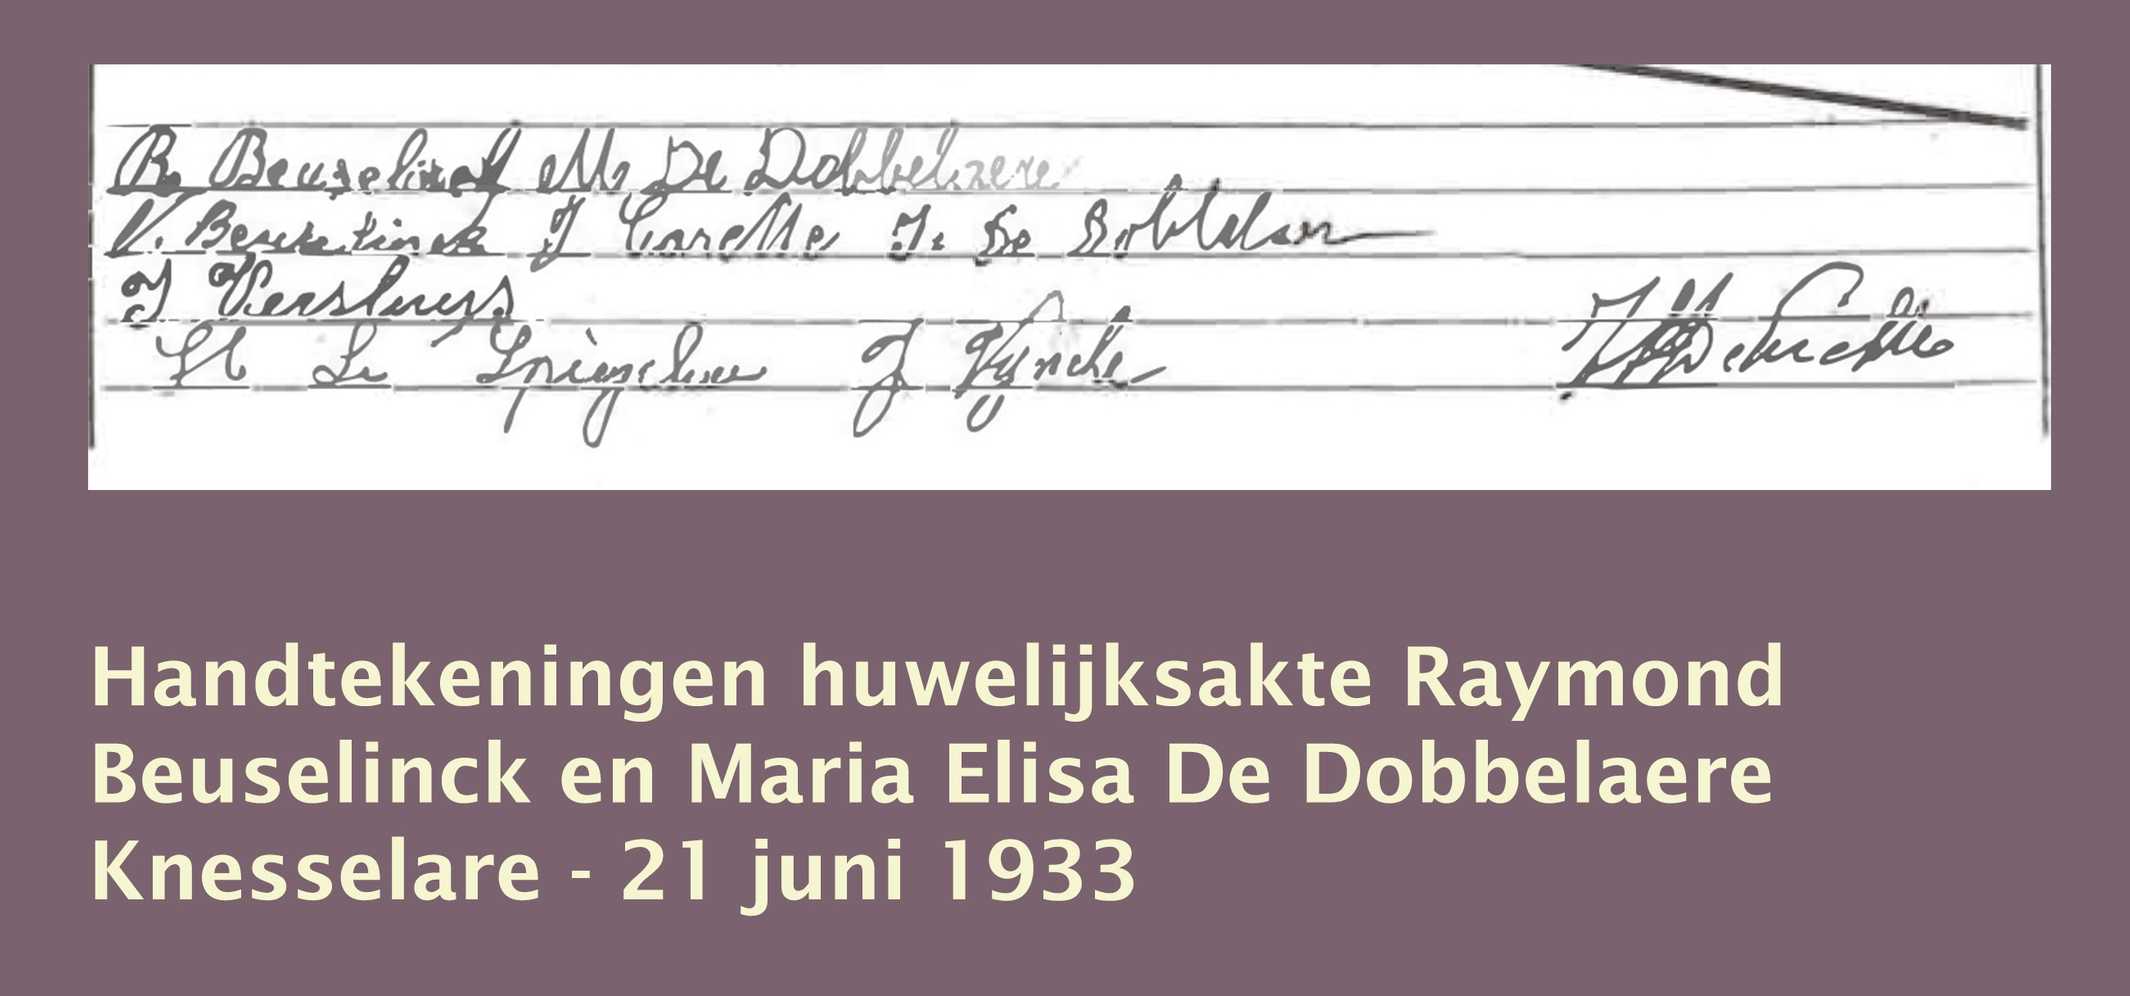 R. Beuselinck M. De Dobbelaere
V. Beuselinck J Carette J. De Dobbelaere
J Versluys
De J Wyncke
Handtekeningen huwelijksakte Raymond
Beuselinck en Maria Elisa De Dobbelaere
Knesselare - 21 juni 1933